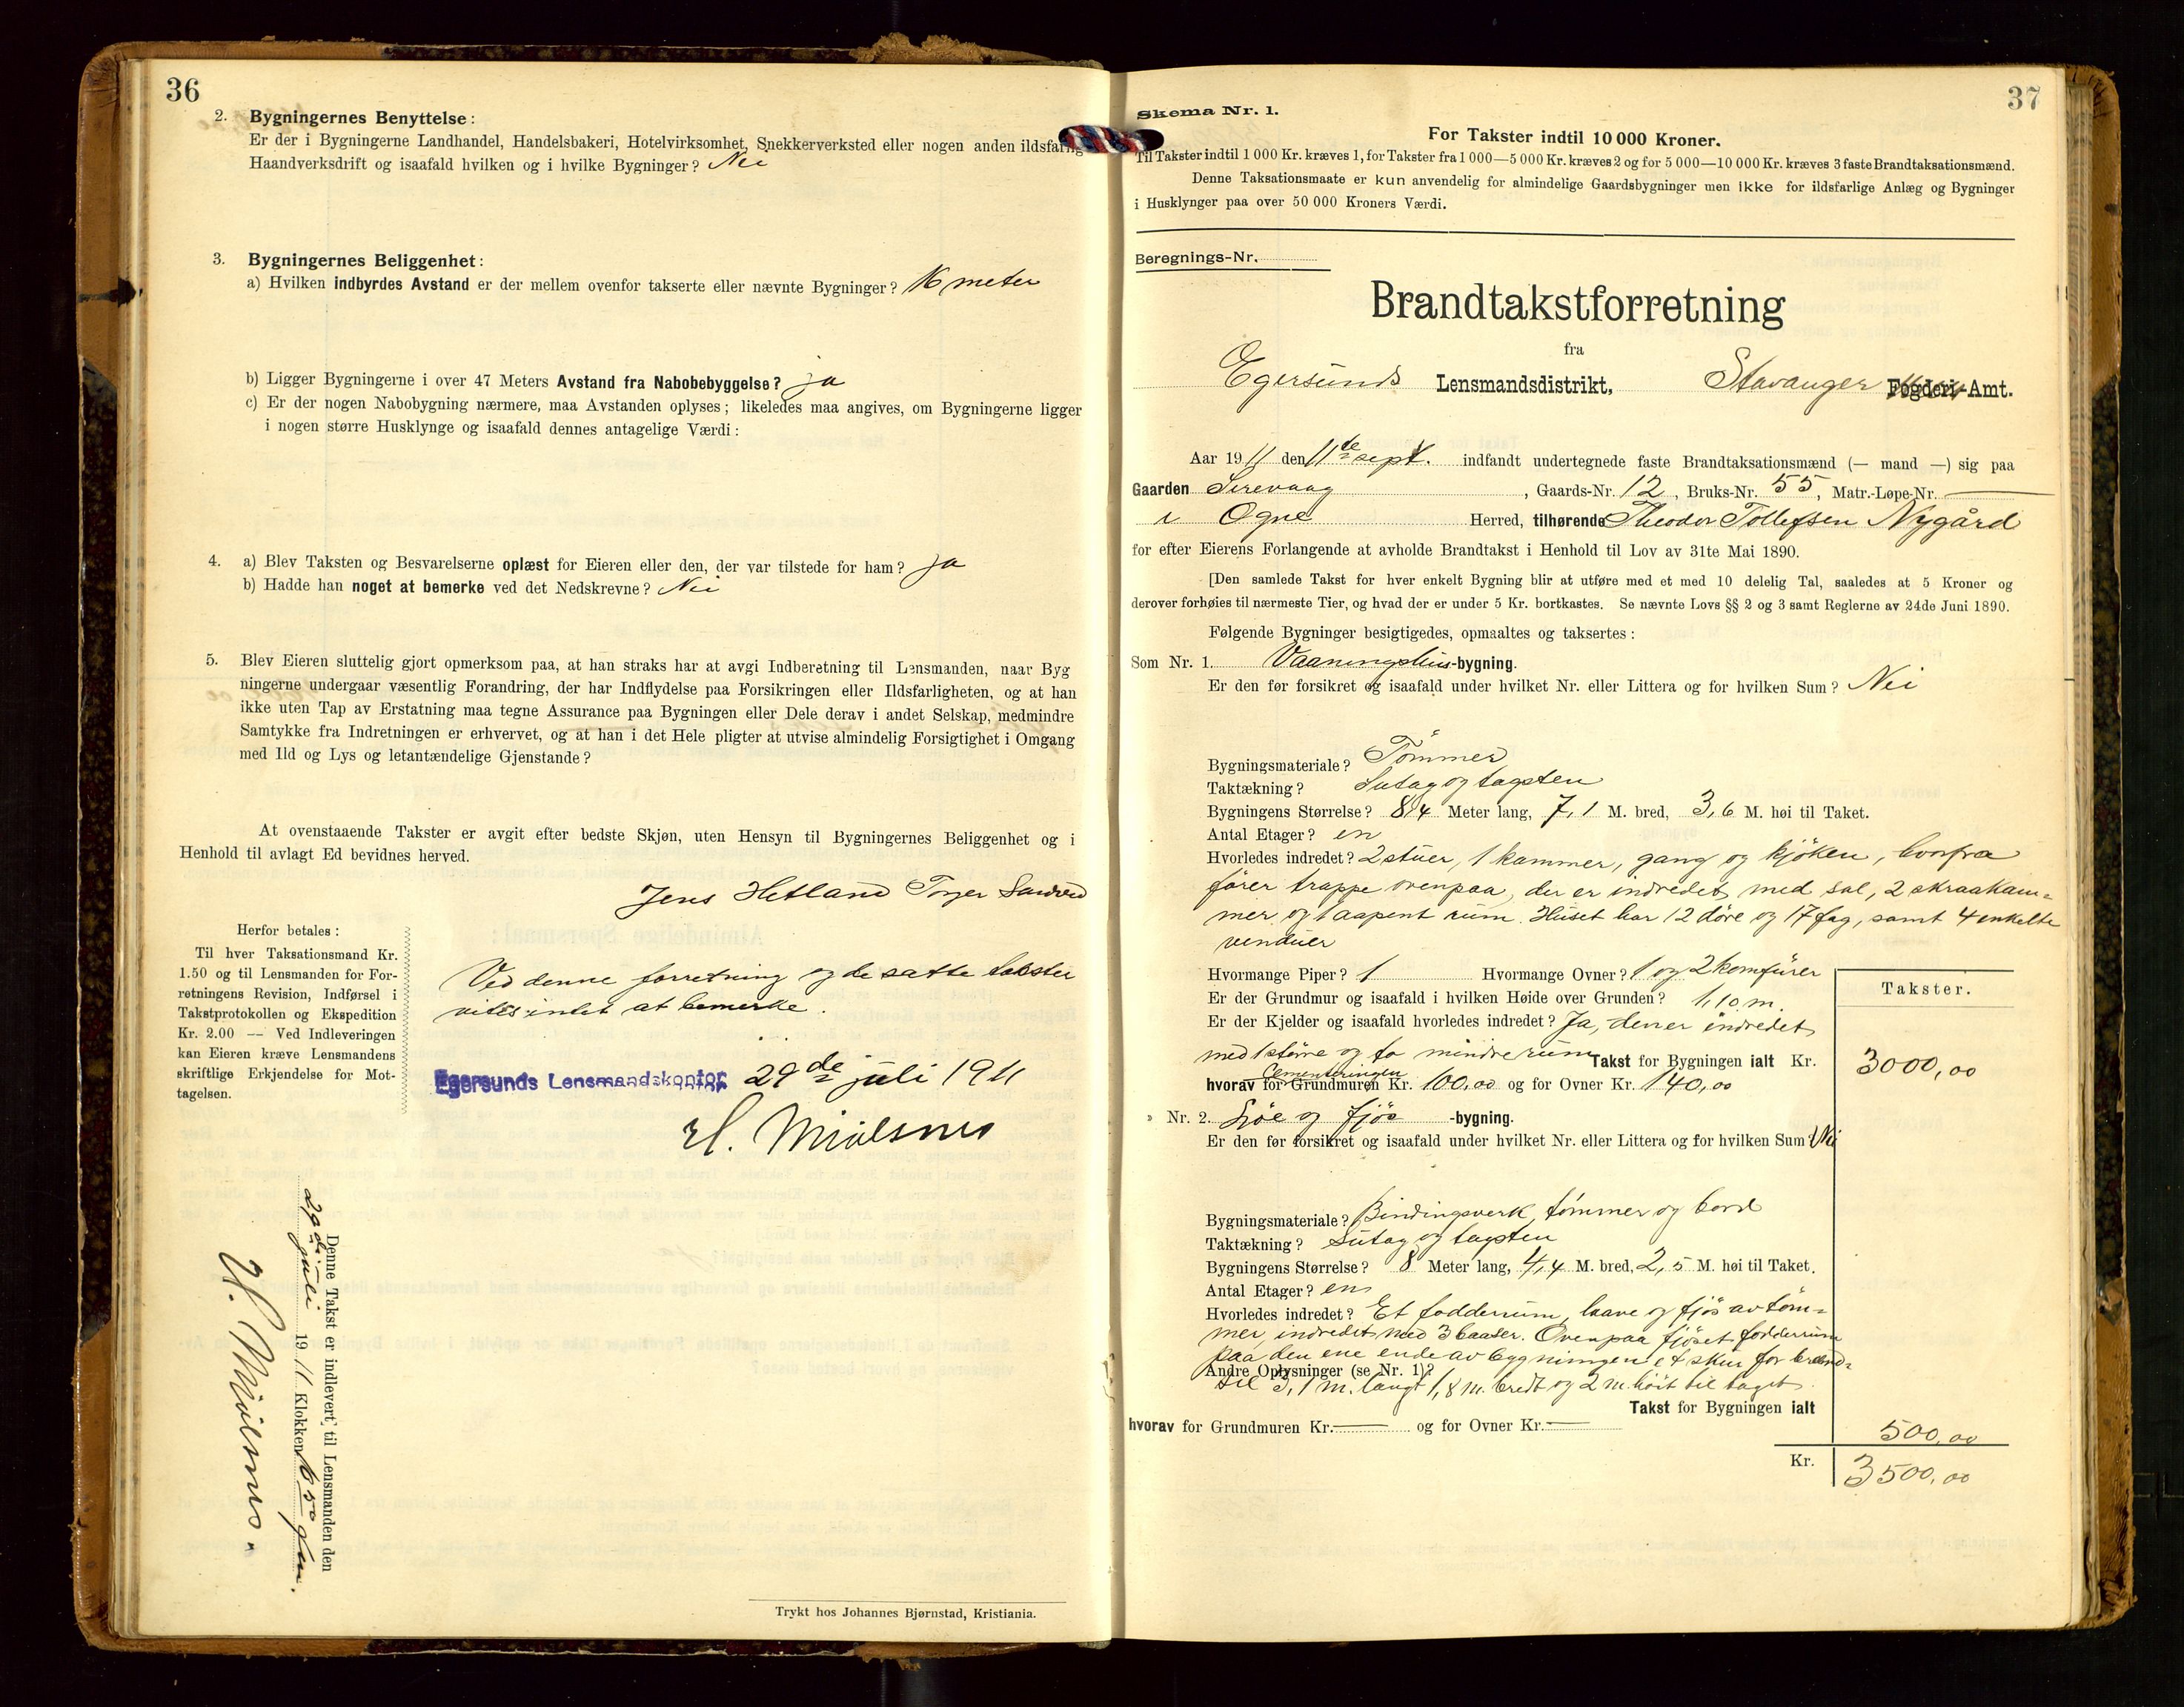 36
2. Bygningernes Benyttelse:
Er der i Bygningerne Landhandel, Handelsbakeri, Hotelvirksomhet, Snekkerverksted eller nogen anden ildsfarlig
Haandverksdrift og isaafald hvilken og i hvilke Bygninger? Nei
3. Bygningernes Beliggenhet:
a) Hvilken indbyrdes Avstand er der mellem ovenfor takserte eller nævnte Bygninger? 16 meter
b) Ligger Bygningerne i over 47 Meters Avstand fra Nabobebyggelse? ja
c) Er der nogen Nabobygning nærmere, maa Avstanden oplyses; likeledes maa angives, om Bygningerne ligger
i nogen større Husklynge og isaafald dennes antagelige Værdi:
4. a) Blev Taksten og Besvarelserne oplæst for Eieren eller den, der var tilstede for ham? ja
b) Hadde han noget at bemerke ved det Nedskrevne? Nei
5. Blev Eieren sluttelig gjort opmerksom paa, at han straks har at avgi Indberetning til Lensmanden, naar Byg
ningerne undergaar væsentlig Forandring, der har Indflydelse paa Forsikringen eller Ildsfarligheten, og at han
ikke uten Tap av Erstatning maa tegne Assurance paa Bygningen eller Dele derav i andet Selskap, medmindre
Samtykke fra Indretningen er erhvervet, og at han i det Hele pligter at utvise almindelig Forsigtighet i Omgang
med Ild og Lys og letantændelige Gjenstande?
At ovenstaaende Takster er avgit efter bedste Skjøn, uten Hensyn til Bygningernes Beliggenhet og i
Henhold til avlagt Ed bevidnes herved.
Jens Hetland Torger Sandved
Herfor betales:
Til hver Taksationsmand Kr.
1.50 og til Lensmanden for For-
retningens Revision, Indførsel i
Takstprotokollen og Ekspedition
Kr. 2.00 — Ved Indleveringen
kan Eieren kræve Lensmandens
skriftlige Erkjendelse for Mot-
tagelsen.
Ved denne forretning og de satte takster
vites intet at bemerke.
Egersunds Lensmandskontor 29de juli 1911
H. Mjølsnes
Denne Takst er indlevert til Lensmanden den
29de juli 1911 Klokken 6 50 fm.
H. Mjølsnes.
Trykt hos Johannes Bjørnstad, Kristiania.
37
Skema Nr. 1.
For Takster indtil 10 000 Kroner.
Til Takster indtil 1 000 Kr. kræves 1, for Takster fra 1 000—5 000 Kr. kræves 2 og for 5 000—10 000 Kr. kræves 3 faste Brandtaksationsmænd.
Denne Taksationsmaate er kun anvendelig for almindelige Gaardsbygninger men ikke for ildsfarlige Anlæg og Bygninger
i Husklynger paa over 50 000 Kroners Værdi.
Beregnings-Nr.
Brandtakstforretning
fra
Egersunds Lensmandsdistrikt, Stavanger Fogderi-Amt.
Aar 1911 den 11te sept. indfandt undertegnede faste Brandtaksationsmænd (— mand —) sig paa
Gaarden Sirevaag, Gaards-Nr. 12, Bruks-Nr. 55, Matr.-Løpe-Nr. —
i Ogne Herred, tilhørende Theodor Tollefsen Nygård
for efter Eierens Forlangende at avholde Brandtakst i Henhold til Lov av 31te Mai 1890.
[Den samlede Takst for hver enkelt Bygning blir at utføre med et med 10 delelig Tal, saaledes at 5 Kroner og
derover forhøies til nærmeste Tier, og hvad der er under 5 Kr. bortkastes. Se nævnte Lovs §§ 2 og 3 samt Reglerne av 24de Juni 1890.
Følgende Bygninger besigtigedes, opmaaltes og taksertes:
Som Nr. 1. Vaaningshus-bygning.
Er den før forsikret og isaafald under hvilket Nr. eller Littera og for hvilken Sum? Nei
Bygningsmateriale? Tömmer
Taktækning? Sutag og tagsten
Bygningens Størrelse? 8,4 Meter lang, 7,1 M. bred, 3,6 M. høi til Taket.
Antal Etager? en
Hvorledes indredet? 2 stuer, 1 kammer, gang og kjöken, hvorfra
förer trappe ovenpaa, der er indredet med sal, 2 skraakam=
mer og 1 aapent rum. Huset har 12 döre og 17 fag, samt 4 enkelte
vinduer
Hvormange Piper? 1 Hvormange Ovner? 1 og 2 komfürer
Er der Grundmur og isaafald i hvilken Høide over Grunden? 1,10 m.
Er der Kjelder og isaafald hvorledes indredet? Ja, den er indredet
med 1 större og to mindre rum Takst for Bygningen ialt Kr.
Takster.
3000,00
Cementeringen
hvorav for Grundmuren Kr. 100,00 og for Ovner Kr. 140,00
» Nr. 2. Löe og fjös -bygning.
Er den før forsikret og isaafald under hvilket Nr. eller Littera og for hvilken Sum? Nei
Bygningsmateriale? Bindingsverk, tömmer og bord
Taktækning? Sutag og tagsten
Bygningens Størrelse? 8 Meter lang, 4,4 M. bred, 2,5 M. høi til Taket.
Antal Etager? en
Hvorledes indredet? Et fodderum, laave og fjös av töm=
mer, indredet med 3 baaser. Ovenpaa fjöset fodderrum
paa den ene ende av bygningen et skur for brænd=
Andre Oplysninger (se Nr. 1)?
sel 3,1 m. langt 1,8 m. bredt og 2 m. höit til taget.
Takst for Bygningen ialt
hvorav for Grundmuren Kr. — og for Ovner Kr. —
500,00
Kr. 3500,00